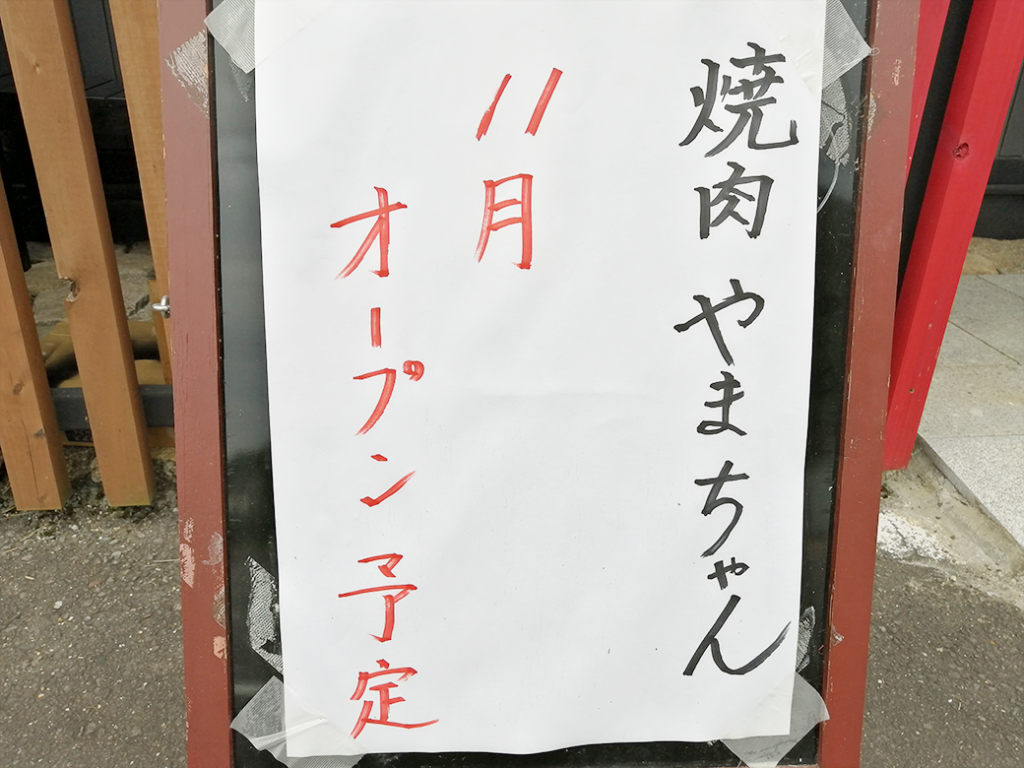 焼肉 やまちゃん
11月
オープン予定